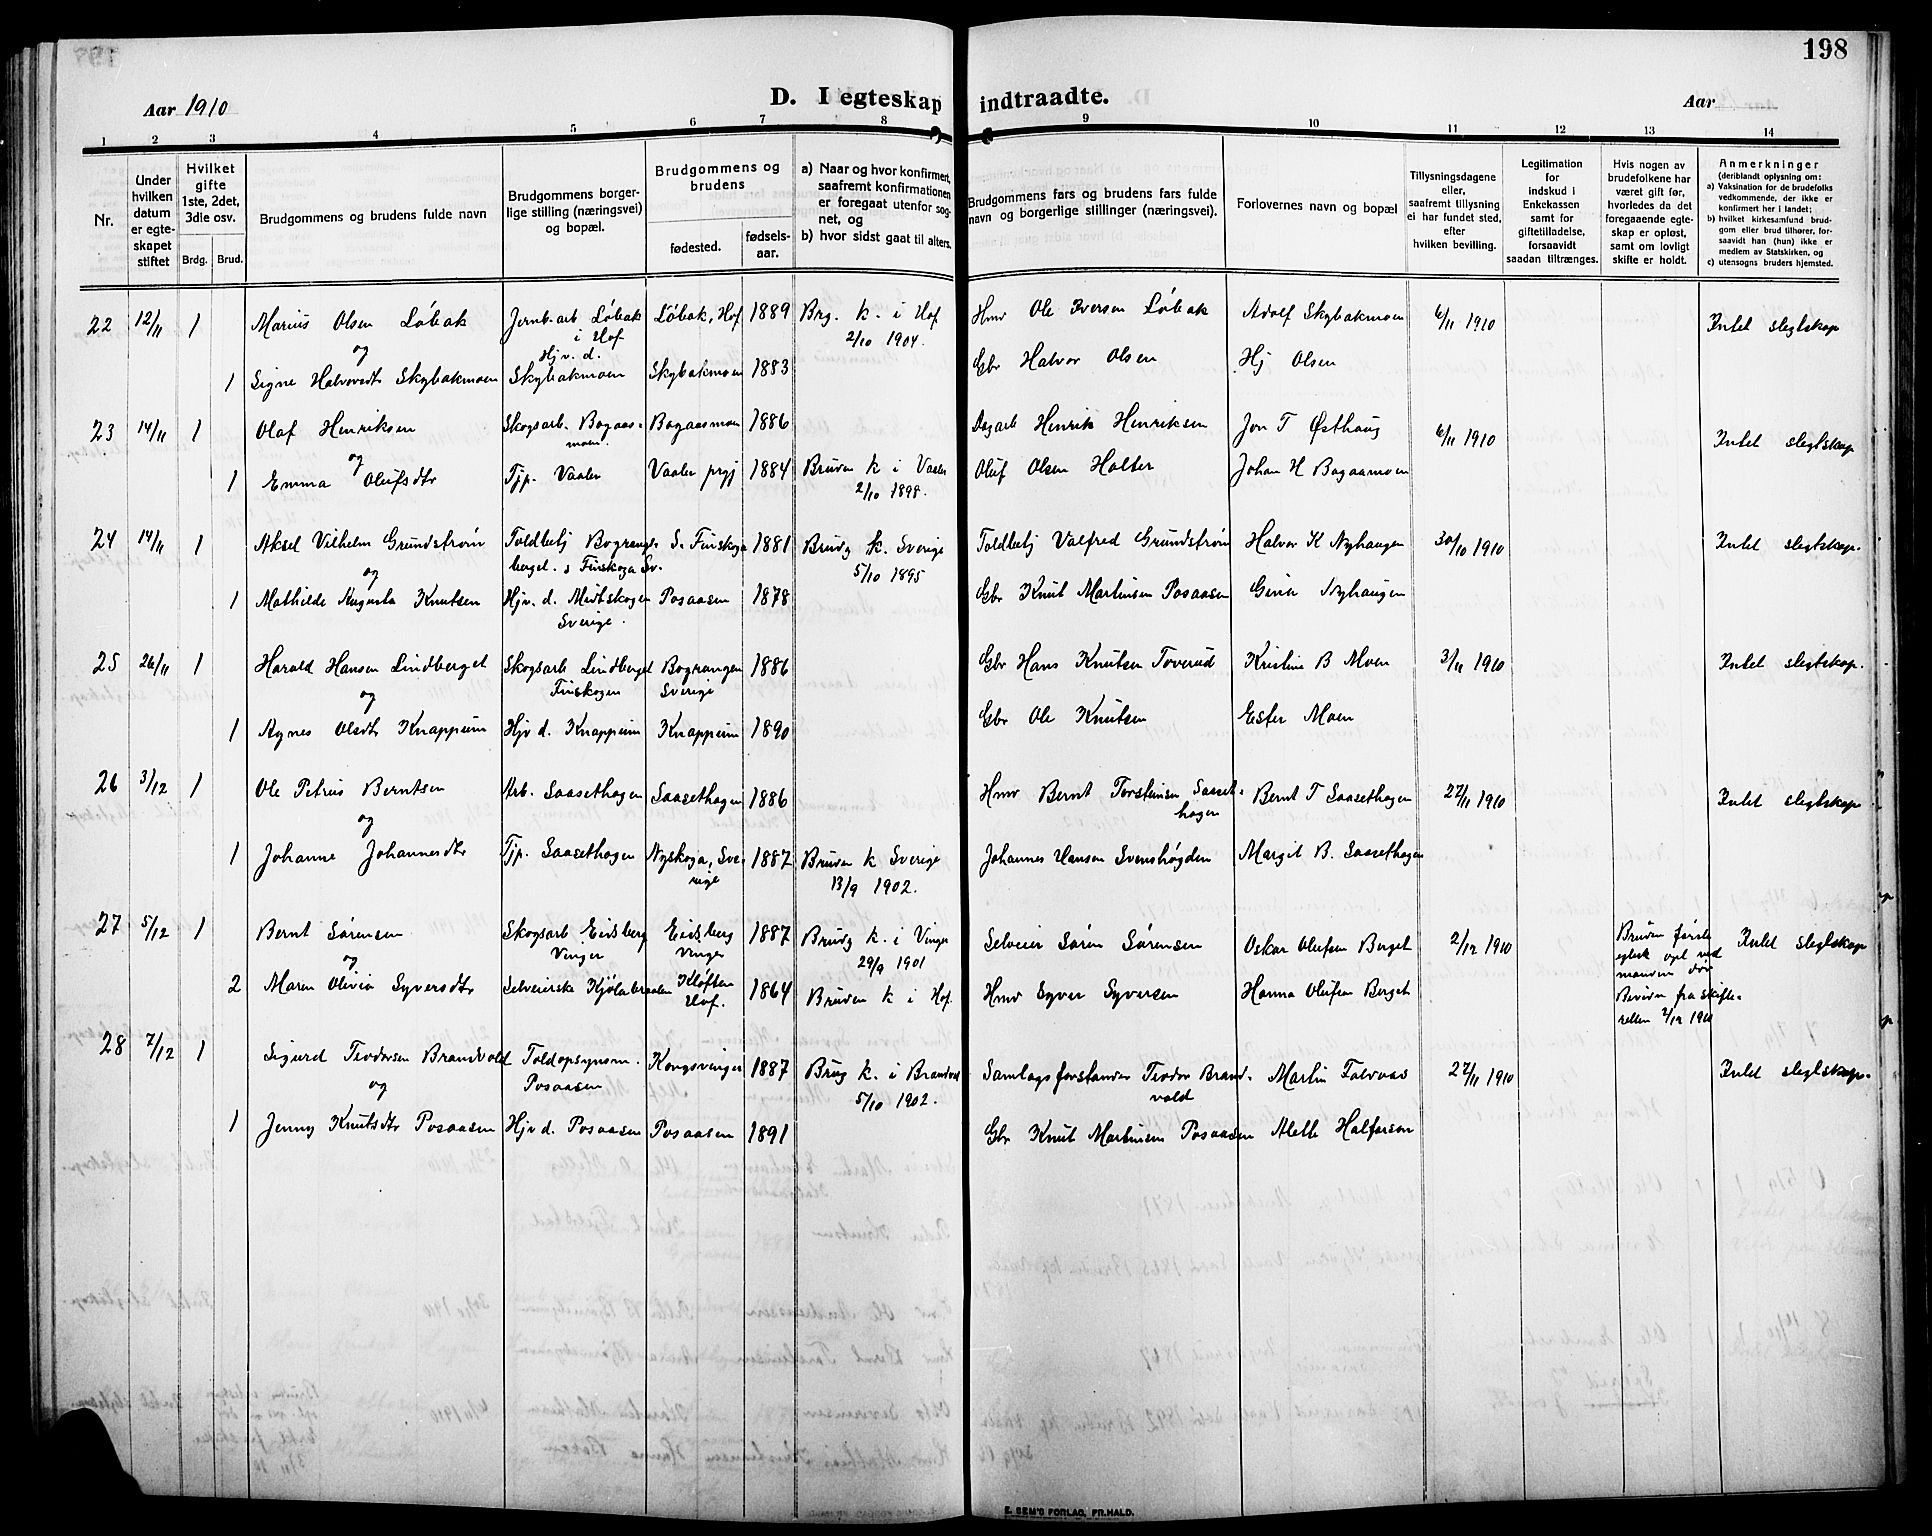 198
Aar 1910
D. I egteskap indtraadte.
Aar
1 2 3 4 5 6 7 8 9 10 11 12 13 14
Nr.
Under hvilken datum er egteskapet stiftet
Hvilket gifte 1ste, 2det, 3die osv.
Brdg. Brud.
Brudgommens og brudens fulde navn
Brudgommens borgerlige stilling (næringsvei) og bopæl.
Brudgommens og brudens
fødested.
fødselsaar.
a) Naar og hvor konfirmert, saafremt konfirmationen er foregaat utenfor sognet, og
b) hvor sidst gaat til alters.
Brudgommens fars og brudens fars fulde navn og borgerlige stillinger (næringsvei).
Forlovernes navn og bopæl
Tillysningsdagene eller, saafremt tillysning ei har fundet sted, efter hvilken bevilling.
Legitimation for indskud i Enkekassen samt for giftetilladelse, forsaavidt saadan tiltrænges.
Hvis nogen av brudefolkene har været gift før, hvorledes da det foregaaende egteskap er opløst, samt om lovligt skifte er holdt.
Anmerkninger
(deriblandt oplysning om:
a) Vaksination for de brudefolks vedkommende, der ikke er konfirmert her i landet;
b) hvilket kirkesamfund brudgom eller brud tilhører, forsaavidt han (hun) ikke er medlem av Statskirken, og
c) utensogns bruders hjemsted.
22 12/11 1 Marius Olsen Løbak Jernb.arb Løbak i Hof Løbak, Hof 1889 Brg. k. i Hof 2/10 1904. Hmv Ole Iversen Løbak Adolf Skybakmoen 6/11 1910 Intet slegtskap
og
1 Signe Halvorsdtr Skybakmoen Hjv. d. Skybakmoen Skybakmoen 1883 Gbr Halvor Olsen Hj Olsen
23 14/11 1 Olaf Henriksen Skogsarb. Bogaasmoen Bogaasmoen 1886 Dagarb Henrik Henriksen Jon T Østhaug 6/11 1910 Intet slegtskap
og
1 Emma Olufsdtr Tjp. Vaaler Vaaler prgj 1884 Bruden k i Vaaler 2/10 1898. Oluf Olsen Halter Johan H Bogaasmoen
24 14/11 1 Aksel Vilhelm Grundstrøm Toldbetj Bograngsberget. s Finskoga Sv. S. Finskoga 1881 Brudg k. Sverige 5/10 1895 Toldbetj Valfred Grundstrøm Halvor K Nyhaugen 30/10 1910 Intet slegtskap.
og
1 Mathilde Augusta Knutsen Hjv. d. Medskogen Sverige. Posaasen 1878 Gbr Knut Martinsen Posaasen Gina Nyhaugen
25 26/11 1 Harald Hansen Lindberget Skogsarb Lindberget Finskogen Bograngen Sverige 1886 Gbr Hans Knutsen Toverud Kristine B Moen 3/11 1910 Intet slegtskap.
og
1 Agnes Olsdtr Knappum Hjv d. Knappum Knappum 1890 Gbr Ole Knutsen Ester Moen
26 3/12 1 Ole Petrus Berntsen Arb. Saasethagen Saasethagen 1886 Hmv Bernt Torstensen Saasethagen Bernt T Saasethagen 27/11 1910 Intet slegtskap
og
1 Johanne Johannesdtr Tjp. Saasethagen Nyskoga, Sverige 1887 Bruden k Sverige 13/9 1902. Johannes Hansen Svenshøgden Margit B. Saasethagen
27 5/12 1 Bernt Sørensen Skogsarb Eidsberg Vinger Eidsberg Vinger 1887 Brudg k. i Vinger 29/9 1901 Selveier Søren Sørensen Oskar Olufsen Berget 2/12 1910 Bruden første egtesk opl ved manden død Bevidn fra skifteretten 2/12 1910 Intet slegtskap
og
2 Maren Olivia Syversdtr Selveierske Kjølabraaten Kløften Hof. 1864 Bruden k i Hof. Hmv Syver Syversen Hanna Olufsen Berget
28 7/12 1 Sigurd Teodorsen Brandvold Toldopsynsm. Posaasen Kongsvinger 1887 Brug k. i Brandvol 5/10 1902. Samlagsforstander Teodor Brandvold Martin Falvaas 27/11 1910 Intet slegtskap.
og
1 Jenny Knutsdtr Posaasen Hjv d. Posaasen Posaasen 1891 Gbr Knut Martinsen Posaasen Alette Halfarsen
E. SEM'S FORLAG, FR.HALD.